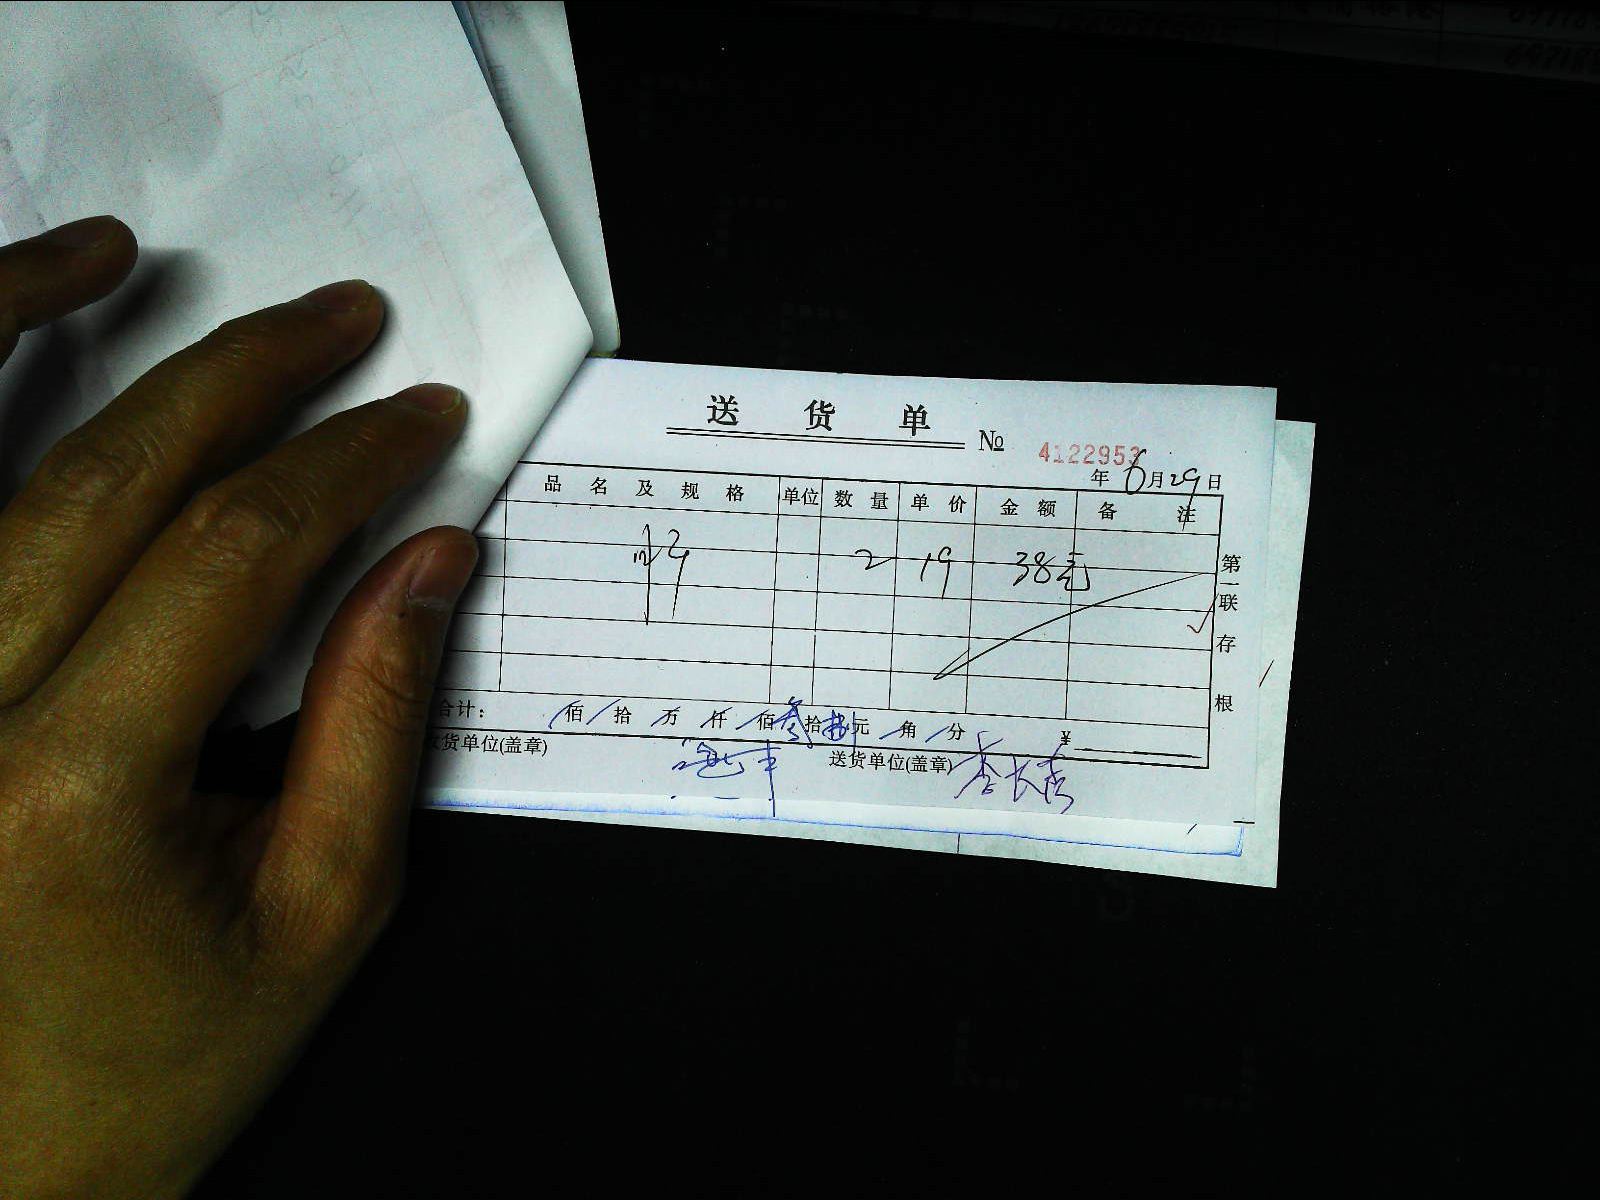 送货单
№ 4122953
年 6月29日
品名及规格 单位 数量 单价 金额 备注
2 19 38元
合计： 佰 拾 万 仟 佰叁拾捌元 角 分 ¥
货单位(盖章) 送货单位(盖章) 李长青
第一联存根